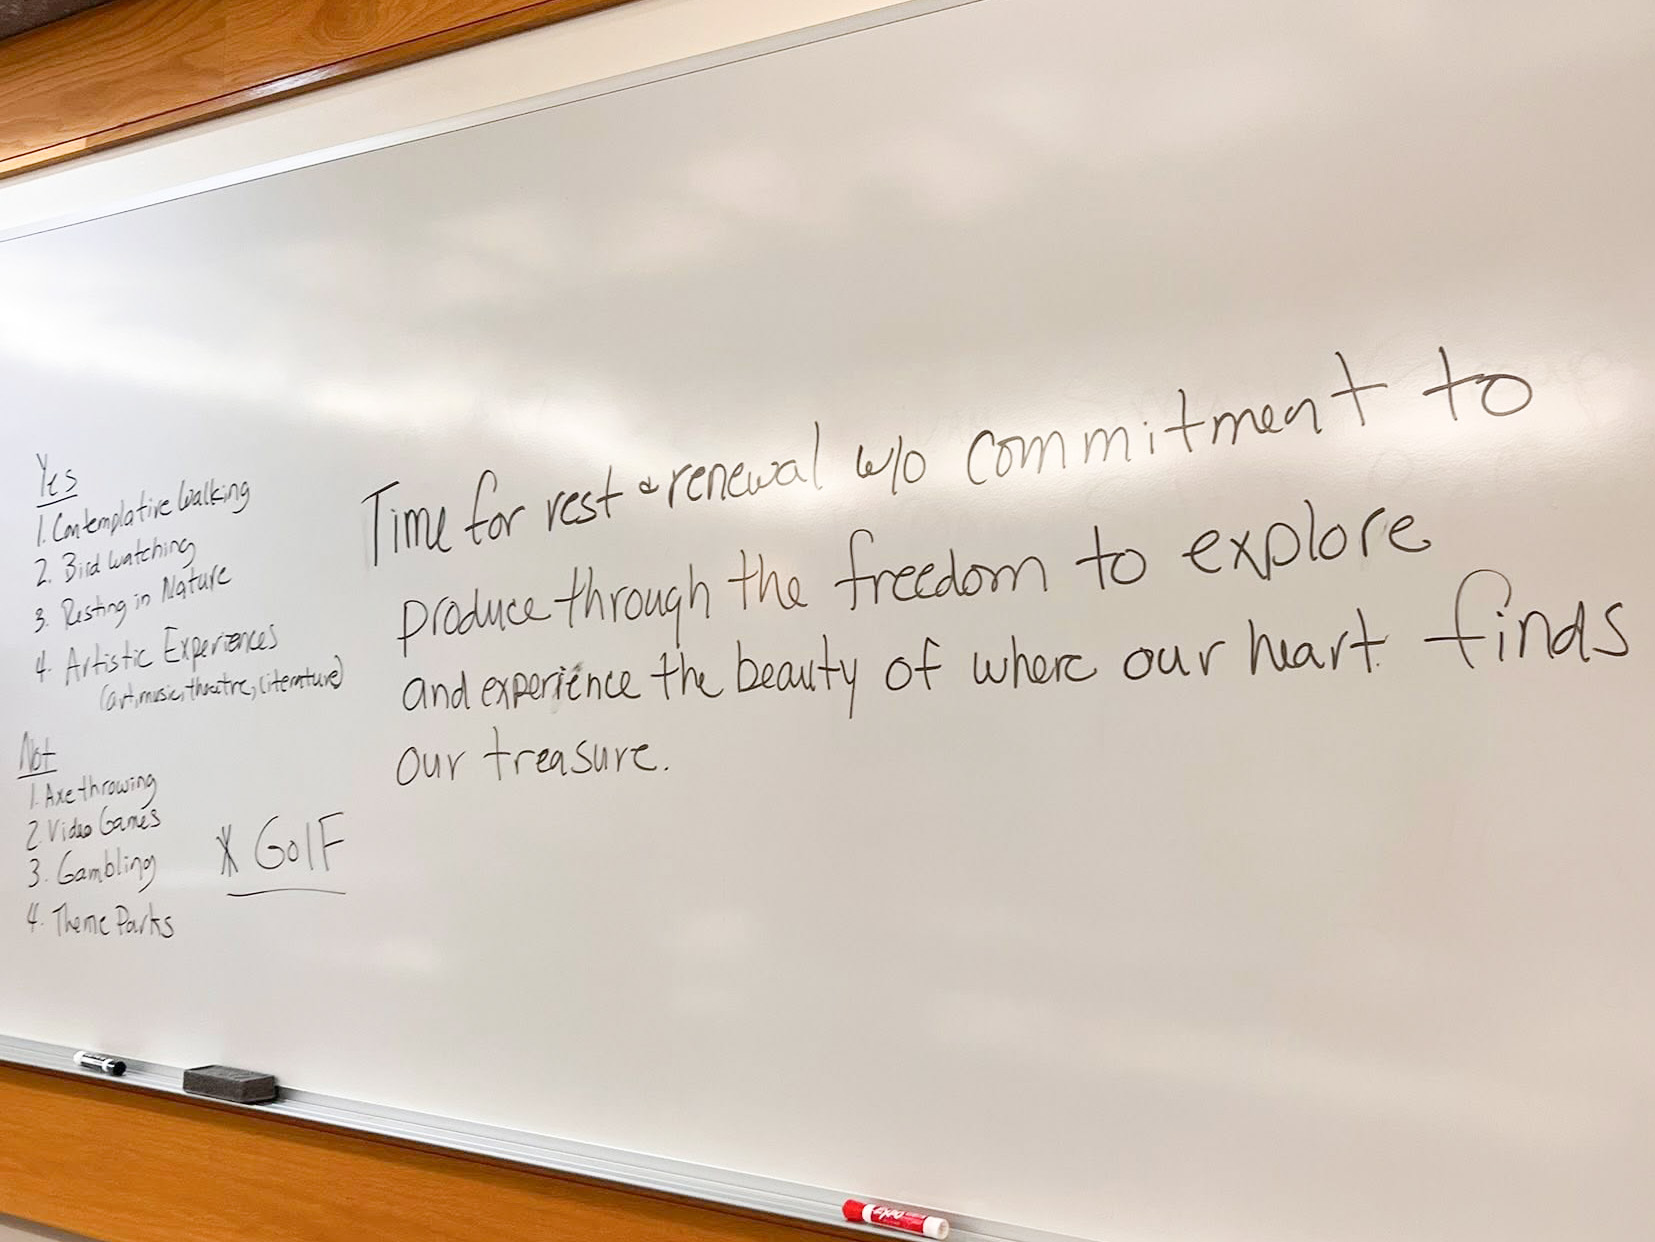 Yes
1. Contemplative Walking
2. Bird watching
3. Resting in Nature
4. Artistic Experiences
(art, music, theatre, literature)
Not
1. Axe throwing
2. Video Games
3. Gambling
4. Theme Parks
* GolF
Time for rest & renewal w/o commitment to
produce through the freedom to explore
and experience the beauty of where our heart finds
our treasure.
expo